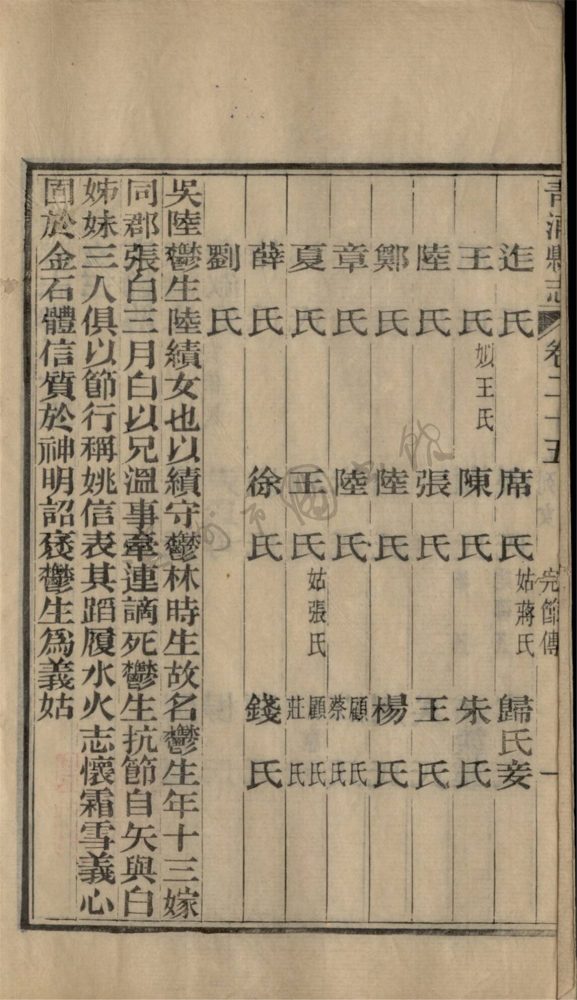 青浦縣志 卷二十五 完節傳 一
迮氏 席氏 姑蔣氏 歸氏妾
王氏 姒王氏 陳氏 朱氏
陸氏 張氏 王氏
鄭氏 陸氏 楊氏
章氏 陸氏 顧氏 蔡氏
夏氏 王氏 姑張氏 顧氏 莊氏
薛氏 徐氏 錢氏
劉氏
吳陸鬱生陸績女也以績守鬱林時生故名鬱生年十三嫁
同郡張白三月白以兄溫事牽連謫死鬱生抗節自矢與白
姊妹三人俱以節行稱姚信表其蹈履水火志懷霜雪義心
固於金石體信質於神明詔襃鬱生爲義姑